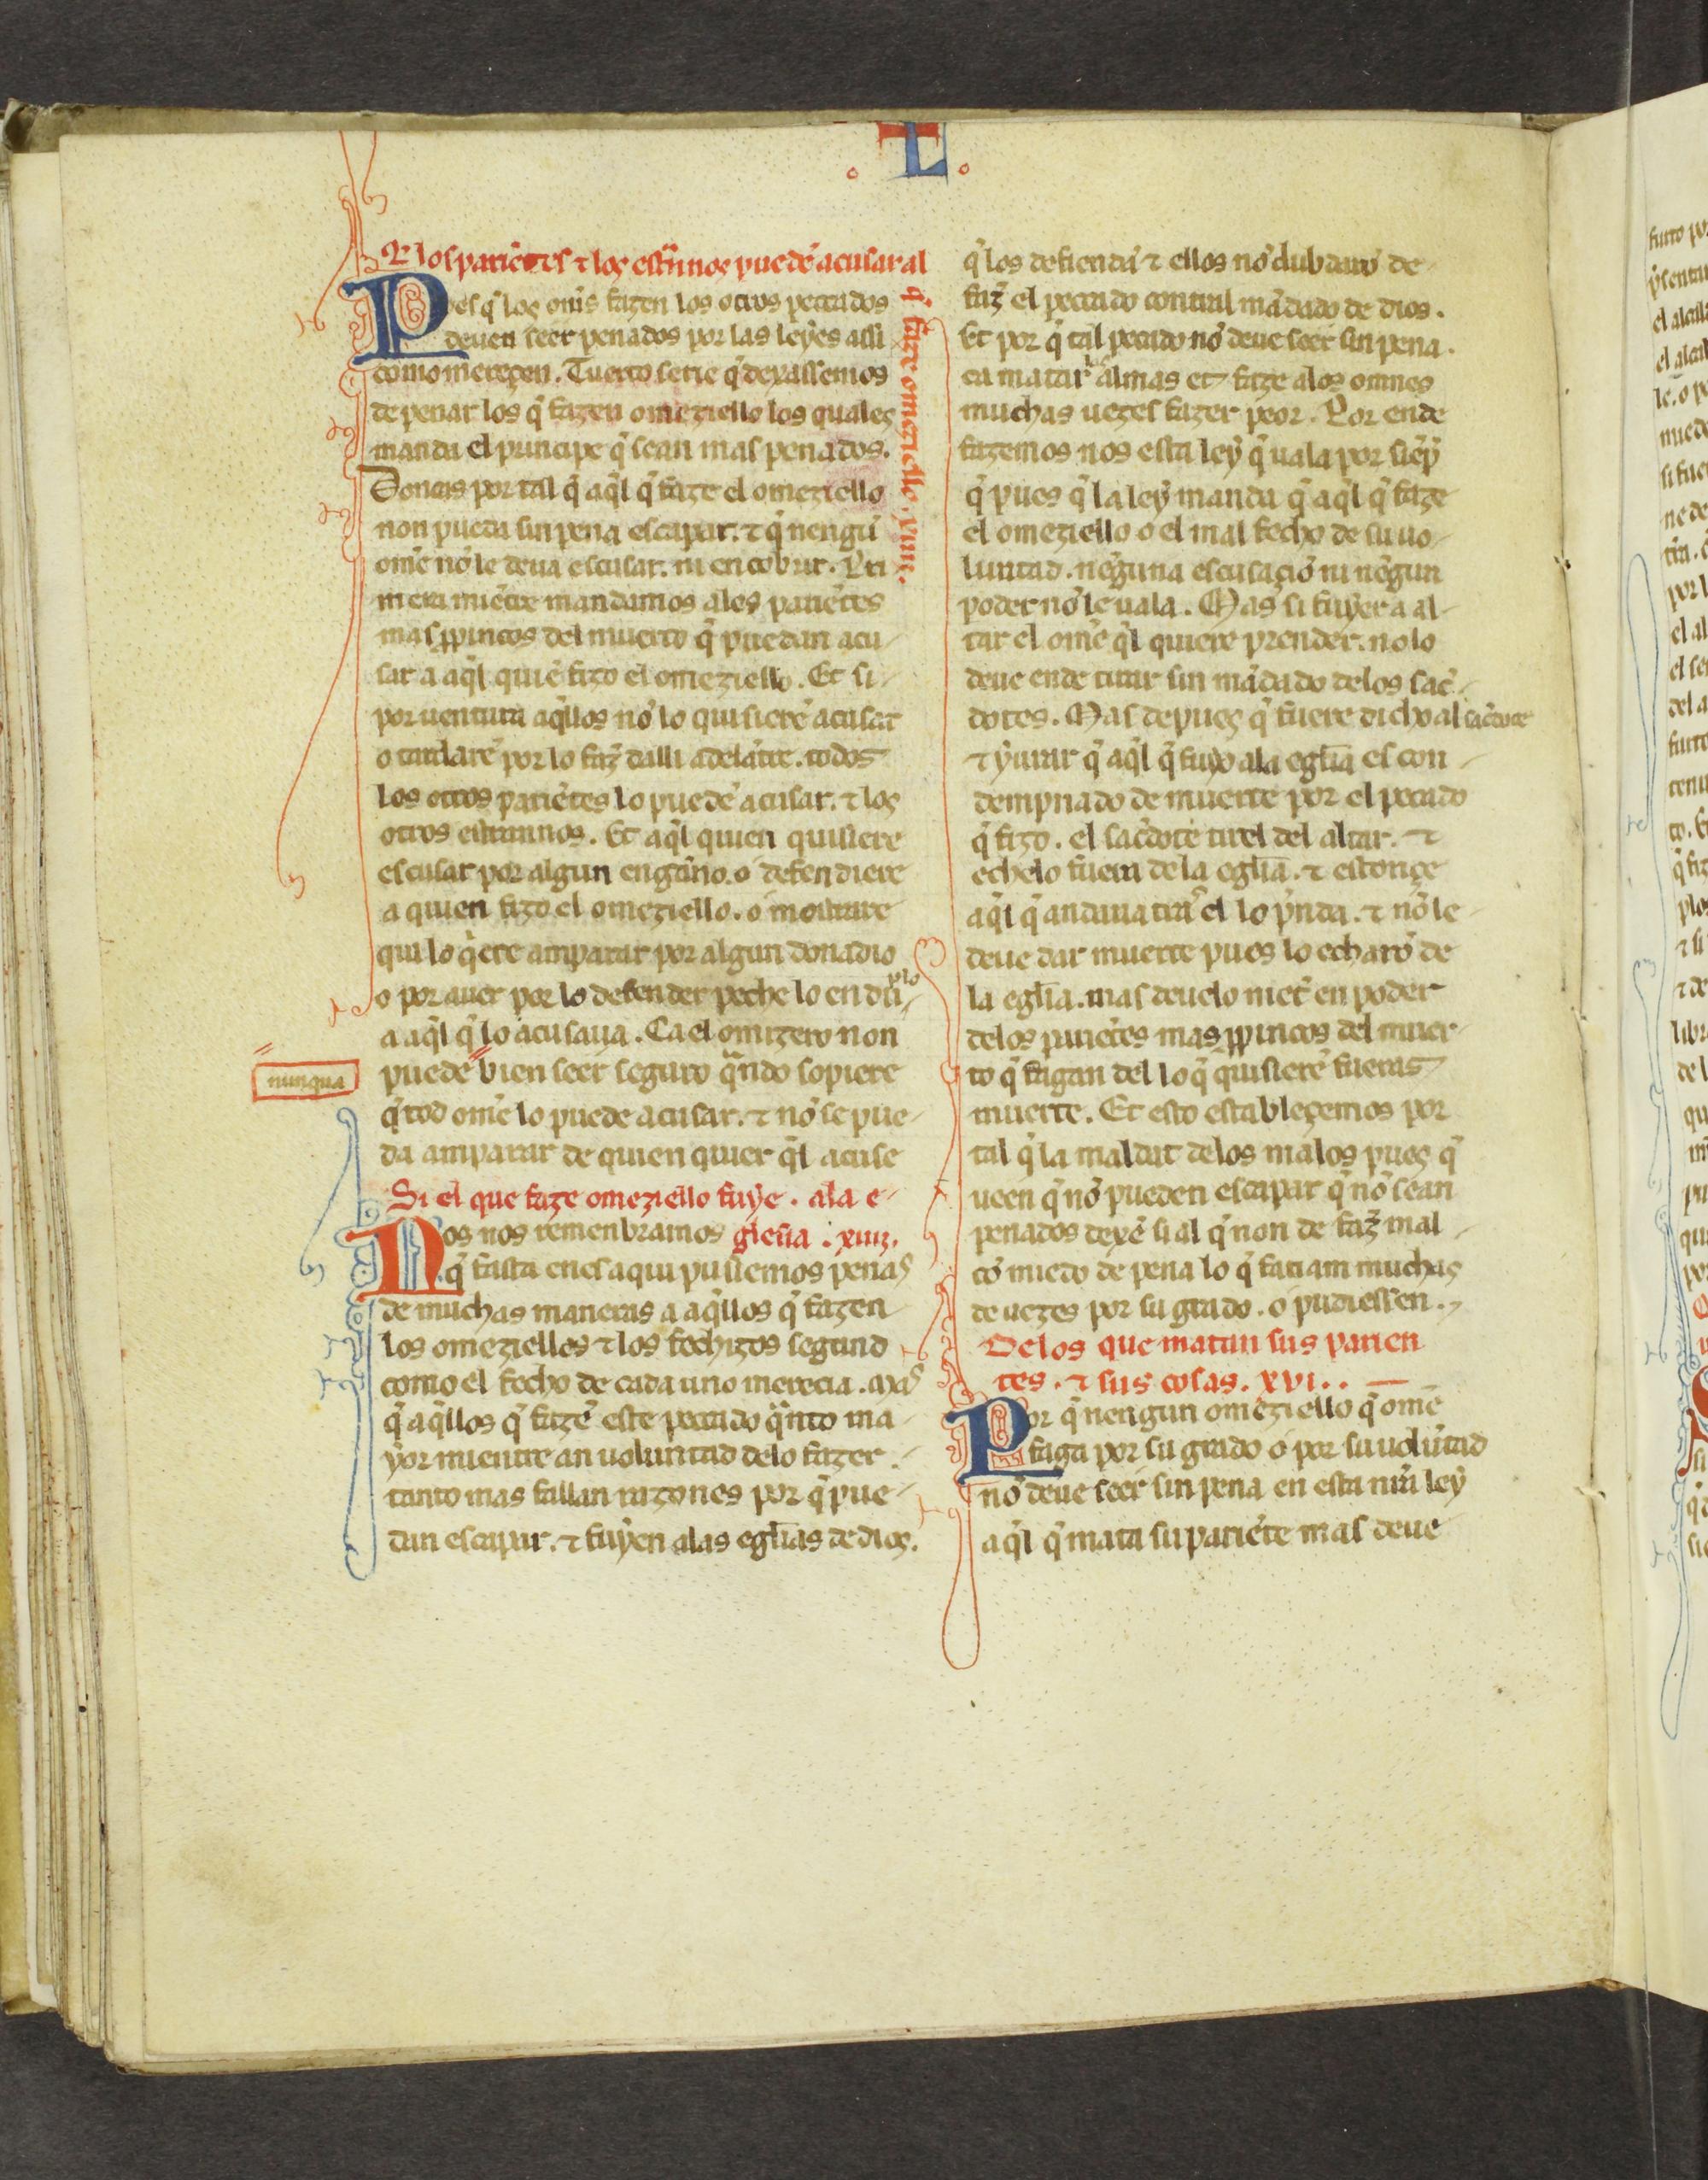 L
Q̄ los pariẽtes ⁊ los estñnos puedẽ acusar al
q̃ faze omeziello. xiiii.
Pues q̃ los om̃s fazen los otros peccados
deuen seer penados por las leyes assi
como mereçen. Tuerto serie q̃ dexassemos
de penar los q̃ fazen omeziello los quales
manda el principe q̃ sean mas penados.
Doncas por tal q̃ aq̃l q̃ faze el omeziello
non pueda sin pena escapar. ⁊ q̃ nengũ
om̃e nõ le deua escusar. ni encobrir. Pri
mera miẽtre mandamos a los pariẽtes
mas ꝓpincos del muerto q̃ puedan acu-
sar a aq̃l quiẽ fizo el omeziello. Et si-
por uentura aq̃llos nõ lo quisierẽ acusar
o tardarẽ por lo faz̃ dalli adelãtre. todos
los otros pariẽtes lo puedẽ acusar. ⁊ los
otros estrannos. Et aq̃l quien quisiere
escusar por algun engãno. o defendiere
a quien fizo el omeziello. o mostrare
qui lo q̃ere amparar por algun donadio
o por auer por lo defender peche lo en du-
plo
a aq̃l q̃ lo acusaua. Ca el omizero non
nunqua
puede bien seer seguro q̃ndo sopiere
q̃ tod om̃e lo puede acusar. ⁊ nõ se pue-
da amparar de quien quier q̃l acuse
Si el que faze omeziello fuye. ala e-
glesia. xv.
Nos nos remenbramos
q̃ fasta enes aqui pusiemos penas
de muchas maneras a aq̃llos q̃ fazen
los omeziellos ⁊ los fechizos segund
como el fecho de cada uno merecia. Mas
q̃ aq̃llos q̃ fazẽ este peccado q̃nto ma-
yor mientre an uoluntad delo fazer.
tanto mas fallan razones por q̃ pue-
dan escapar. ⁊ fuyen alas egl̃ias de dios.
q̃ los defiendã ⁊ ellos nõ dubdarõ de-
faz̃ el peccado contral mãdado de dios.
Et por q̃ tal peccado nõ deue seer sin pena.
ca matar almas et faze alos omnes
muchas uezes fazer peor. Por ende
fazemos nos esta ley q̃ uala por siẽp̃
q̃ pues q̃ la ley manda q̃ aq̃l q̃ faze
el omeziello o el mal fecho de su uo-
luntad. nẽguna escusaciõ ni nẽgun
poder nõ le uala. Mas si fuyer a al-
tar el om̃e q̃l quiere prender. no lo
deue ende tirar sin mãdado delos sac̃-
dotes. Mas depues q̃ fuere dicho al sac̃dote
⁊ yurar q̃ aq̃l q̃ fuyo ala egl̃ia es con-
dempnado de muerte por el peccado
q̃ fizo. el sac̃dote tirel del altar. ⁊
echelo fuera de la egl̃ia. ⁊ estonçe
aq̃l q̃ andaua tras el lo p̃nda. ⁊ nõ le-
deue dar muerte pues lo echarõ de
la egl̃ia. mas deuelo met̃ en poder
delos pariẽtes mas ꝓpincos del muer-
to q̃ fagan del lo q̃ quisierẽ fueras
muerte. Et esto estableçemos por
tal q̃ la maldat delos malos pues q̃
ueen q̃ nõ pueden escapar q̃ nõ sean
penados dexẽ si al q̃ non de faz̃ mal-
cõ miedo de pena lo q̃ fariam muchas
de uezes por su grado. o pudiessen.
Delos que matan sus parien
tes. ⁊ sus cosas. xvi..
Por q̃ nengun omeziello q̃ om̃e
faga por su grado o por su uolũtad
nõ deue seer sin pena en esta nr̃a ley
aq̃l q̃ mata su pariẽte mas deue